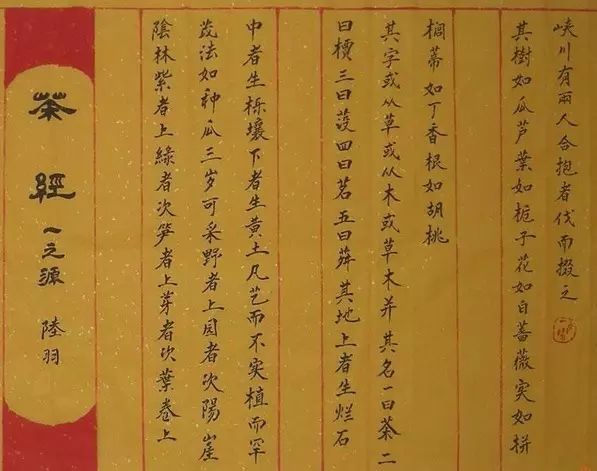 峡川有兩人合抱者伐而掇之
其樹如瓜芦葉如栀子花如白薔薇实如栟
榈蒂如丁香根如胡桃
其字或从草或从木或草木并其名一曰茶二
曰檟三曰蔎四曰茗五曰荈其地上者生烂石
中者生栎壤下者生黄土凡艺而不实植而罕
茂法如种瓜三岁可采野者上园者次陽崖
陰林紫者上綠者次笋者上芽者次葉卷上
茶經 一之源 陸羽